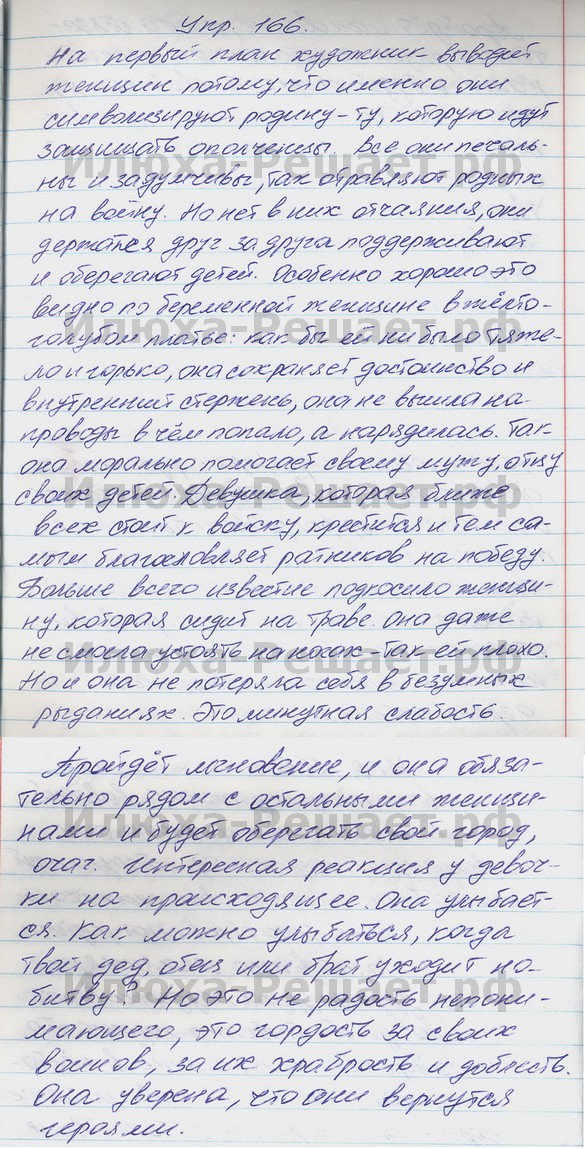 Упр. 166.
На первый план художник выводит
женщин потому, что именно они
символизируют родину - ту, которую идут
защищать ополченцы. Все они печаль-
ны и задумчивы, так отправляют родных
на войну. Но нет в них отчаяния, они
держатся друг за друга поддерживают
и оберегают детей. Особенно хорошо это
видно по беременной женщине в жёлто-
голубом платье: как бы ей ни было тяже-
ло и горько, она сохраняет достоинство и
внутренний стержень, она не вышла на
проводы в чём попало, а нарядилась. Так
она морально помогает своему мужу, отцу
своих детей. Девушка, которая ближе
всех стоит к войску, крестится и тем са-
мым благословляет ратников на победу.
Больше всего известие подкосило женщи-
ну, которая сидит на траве. Она даже
не смогла устоять на ногах - так ей плохо.
Но и она не потеряла себя в безумных
рыданиях. Это минутная слабость.
Пройдёт мгновение, и она обяза-
тельно рядом с остальными женщи-
нами и будет оберегать свой город,
очаг. Интересная реакция у девоч-
ки на происходящее. Она улыбает-
ся. Как можно улыбаться, когда
твой дед, отец или брат уходит на
битву? Но это не радость непони-
мающего, это гордость за своих
воинов, за их храбрость и доблесть.
Она уверена, что они вернутся
героями.
Илюха-Решает.рф
Илюха-Решает.рф
Илюха-Решает.рф
Илюха-Решает.рф
Илюха-Решает.рф
Илюха-Решает.рф
Илюха-Решает.рф